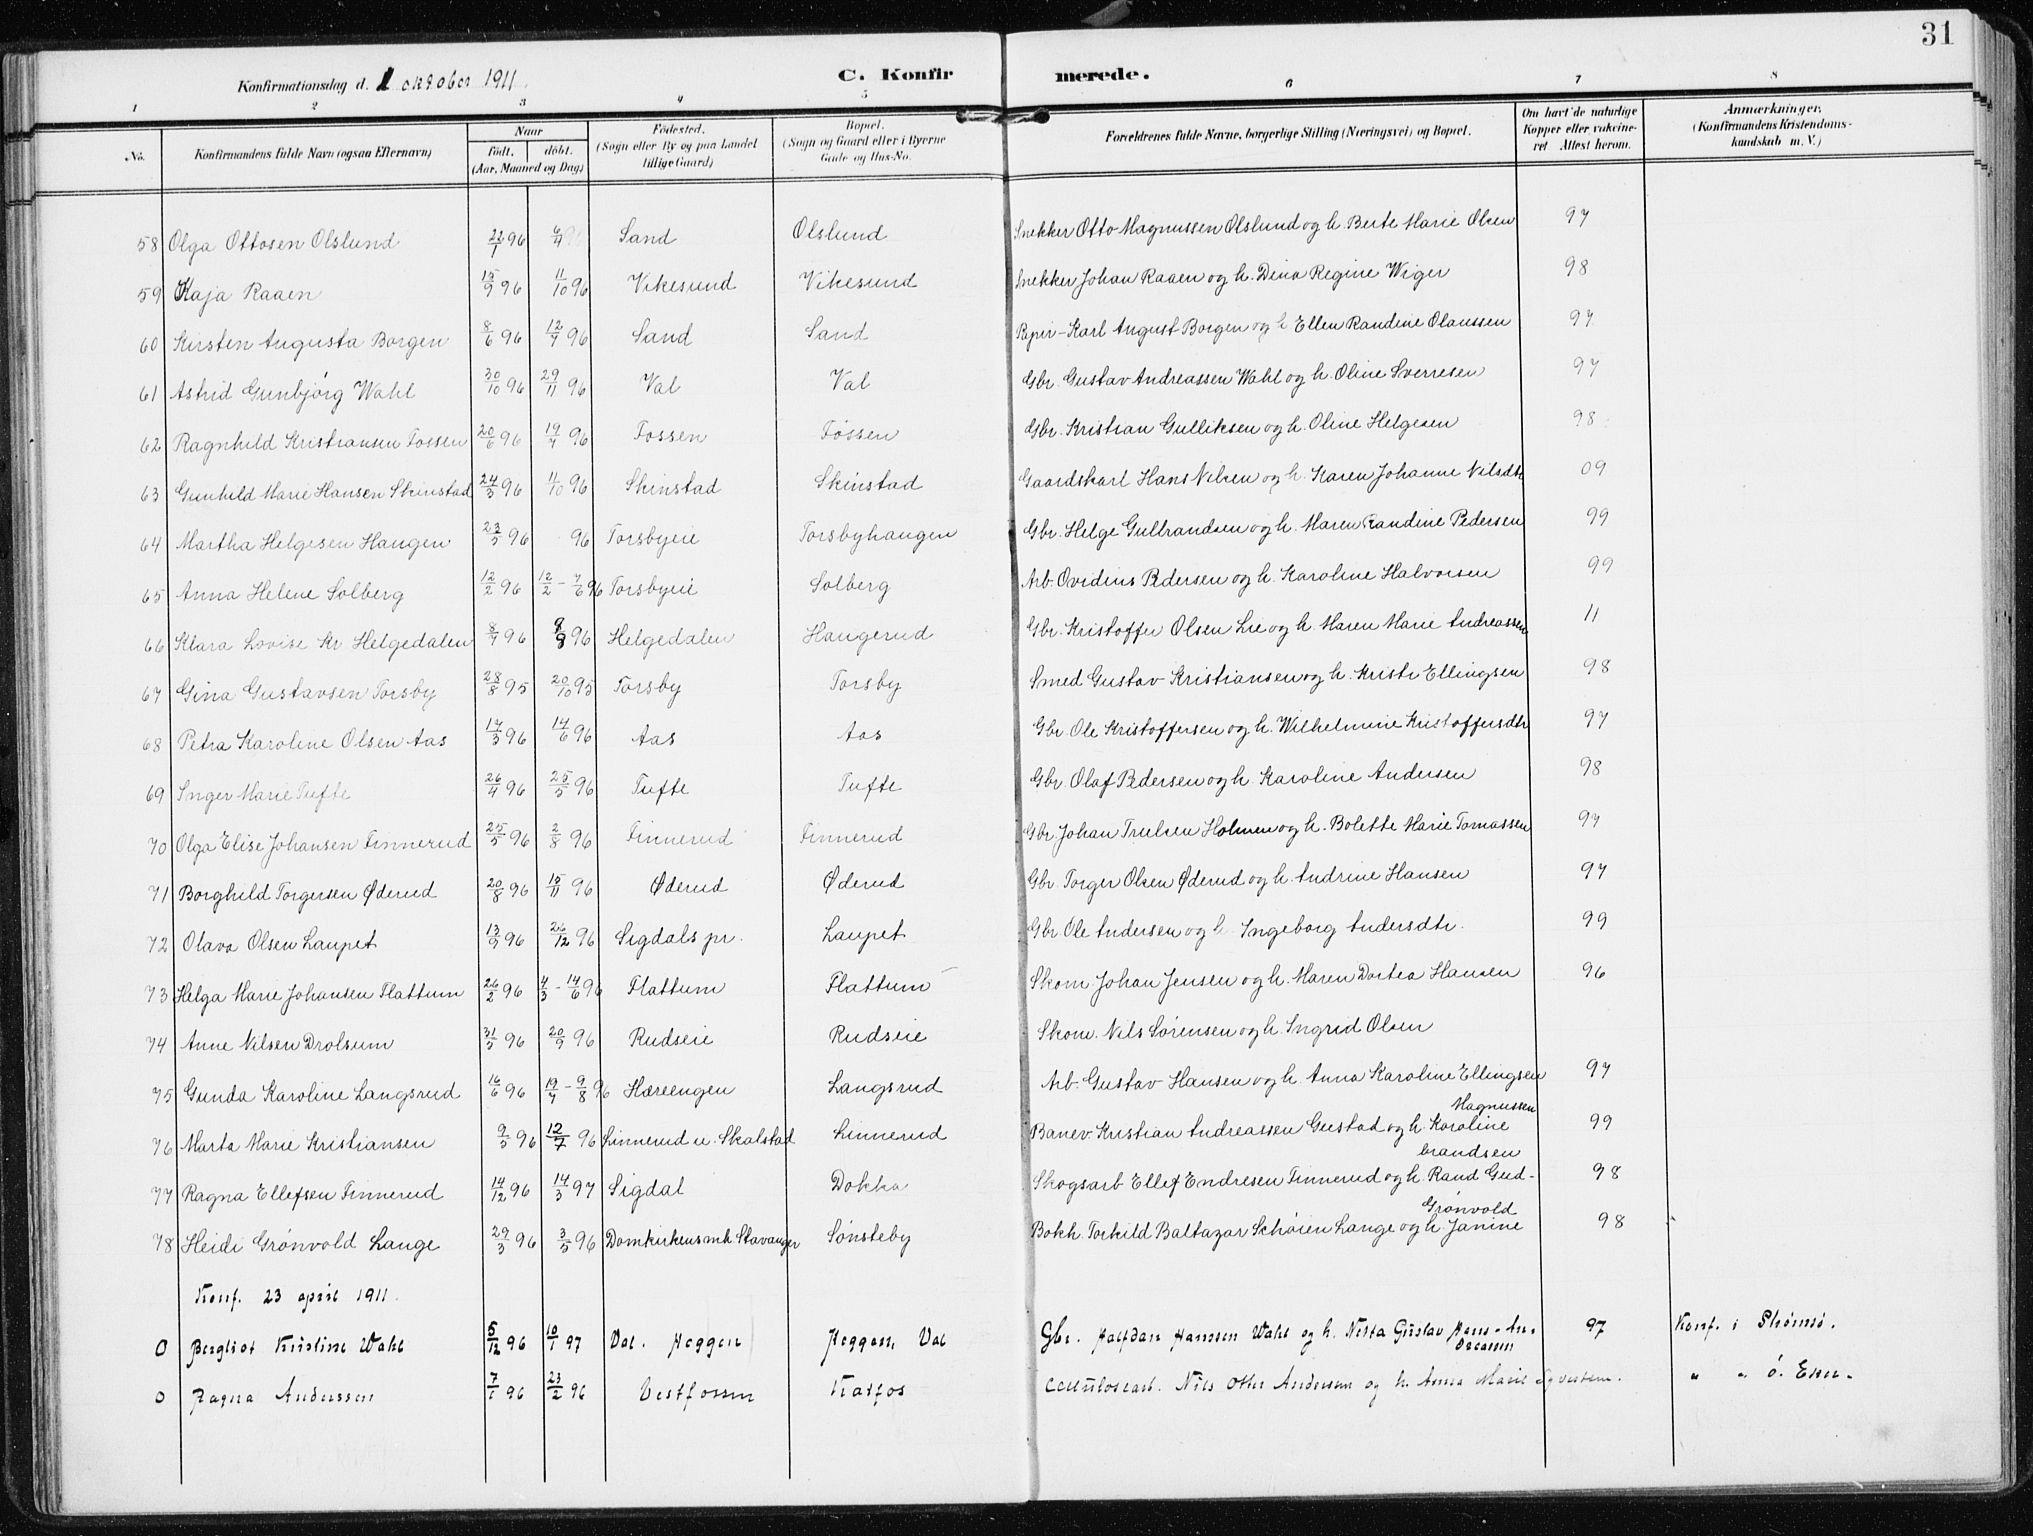 31
Konfirmationsdag d. 1 oktober 1911. C. Konfir merede.
1 2 3 4 5 6 7 8
No. Konfirmandens fulde Navn (ogsaa Efternavn) Naar født. døbt. (Aar, Maaned og Dag) Fødested. (Sogn eller By og paa Landet tillige Gaard) Bopæl. (Sogn og Gaard eller i Byerne Gade og Hus-No. Forældrenes fulde Navne, borgerlige Stilling (Næringsvei) og Bopæl. Om havt de naturlige Kopper eller vakcineret Attest herom. Anmærkninger. (Konfirmandens Kristendomskundskab m. V.)
58 Olga Ottosen Olslund 22/1 96 6/4 96 Sand Olslund Snekker Otto Magnussen Olslund og h. Berte Marie Olsen 97
59 Kaja Raaen 15/9 96 11/10 96 Vikesund Vikesund Snekker Johan Raaen og h. Dina Regine Wiger 98
60 Kirsten Augusta Borgen 8/6 96 12/7 96 Sand Sand Papir-Karl August Borgen og h Ellen Randine Olaussen 97
61 Astrid Gunbjörg Wahl 30/10 96 29/11 96 Val Val Gbr. Gustav Andreassen Wahl og h. Oline Sverresen 97
62 Ragnhild Kristiansen Fossen 20/6 96 19/7 96 Fossen Fossen Gbr. Kristian Gulliksen og h. Oline Helgesen 98
63 Gunhild Marie Hansen Skinstad 24/3 96 11/10 96 Skinstad Skinstad Gaardskarl Hans Nilsen og h. Karen Johanne Nilsdtr 09
64 Martha Helgesen Haugen 23/5 96 96 Torsbyeie Torsbyhaugen Gbr. Helge Gulbrandsen og h. Maren Randine Pedersen 99
65 Anna Helene Solberg 12/2 96 12/2 - 7/6 96 Torsbyeie Solberg Arb. Ovidius Pedersen og h. Karoline Halvorsen 99
66 Klara Lovise Kr Helgedalen 8/7 96 8/9 96 Helgedalen Haugerud Gbr. Kristoffer Olsen Lie og h. Maren Marie Andreassen 11
67 Gina Gustavsen Torsby 28/8 95 20/10 95 Torsby Torsby Smed Gustav Kristiansen og h. Kristi Ellingsen 98
68 Petra Karoline Olsen Aas 17/3 96 14/6 96 Aas Aas Gbr. Ole Kristoffersen og h. Wilhelmine Kristoffersdtr 97
69 Inger Marie Tufte 26/4 96 25/5 96 Tufte Tufte Gbr. Olaf Pedersen og h. Karoline Andersen 98
70 Olga Elise Johansen Finnerud 25/5 96 2/8 96 Finnerud Finnerud Gbr. Johan Truelsen Holmen og h. Bolette Marie Tomassen 97
71 Borghild Torgersen Øderud 20/8 96 15/11 96 Øderud Øderud Gbr. Torger Olsen Øderud og h. Andrine Hansen 97
72 Olava Olsen Laupet 13/9 96 26/12 96 Sigdals pr. Laupet Gbr Ole Andersen og h Ingeborg Andersdtr. 99
73 Helga Marie Johansen Flattum 26/2 96 4/3 - 14/6 96 Flattum Flattum Skom. Johan Jensen og h. Maren Dortea Hansen 96
74 Anne Nilsen Drolsum 31/5 96 20/9 96 Rudseie Rudseie Skom. Nils Sörensen og h. Ingrid Olsen
75 Gunda Karoline Langsrud 16/6 96 19/7 - 9/8 96 Hæreengen Langsrud Arb. Gustav Hansen og h. Anna Karoline Ellingsen 97
Magnussen
76 Marta Marie Kristiansen 9/5 96 12/7 96 Linnerud u. Skalstad Linnerud Banev. Kristian Andreassen Gustad og h. Karoline 99
brandsen
77 Ragna Ellefsen Finnerud 14/12 96 14/3 97 Sigdal Dokka Skogsarb Ellef Endresen Finnerud og h. Rand Gud- 98
Grønvold
78 Heidi Grønvold Lange 29/3 96 3/5 96 Domkirkens mh Stavanger Sønsteby Bokh. Torkild Baltazar Schøien Lange og h. Janine 98
Konf. 23 april 1911.
0 Bergliot Kristine Wahl 5/12 96 10/1 97 Val. Heggen Heggen, Val Gbr. Halfdan Hanssen Wahl og h. Gustav 97 Konf. i Strømsø.
0 Ragna Anderssen 7/1 96 23/2 96 Vestfossen Katfos Cellulosearb. Nils Otter Andersen og h. Anna Marie " " ø. Eker.